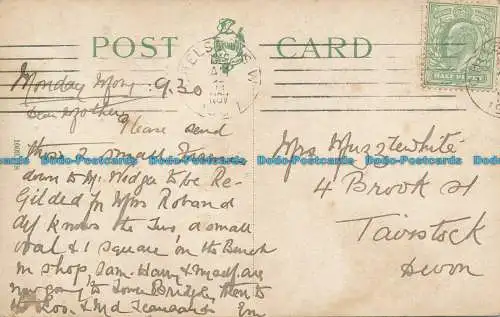 POST CARD
HALF PENNY
Monday Morg 9.30
Dear Mother
Please send
those 2 small
down to Mr. to be Re-
Gilded for Mrs
def knows the two, a small
oval & 1 square on the Bench
in shop Dan. Harry & Madf are
now going to Tower Bridge then to
the Zoo. & Md Em
Mrs Muzzlewhite
4 Brook St
Tavistock
Devon
Dodo-Postcards Dodo-Postcards Dodo-Postcards Dodo-Postcards Dodo-Postcards